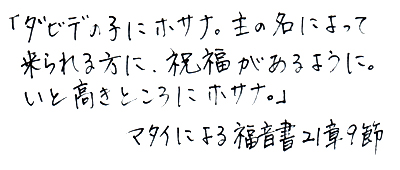 「ダビデの子にホサナ。主の名によって
来られる方に、祝福があるように。
いと高きところにホサナ。」
マタイによる福音書21章9節